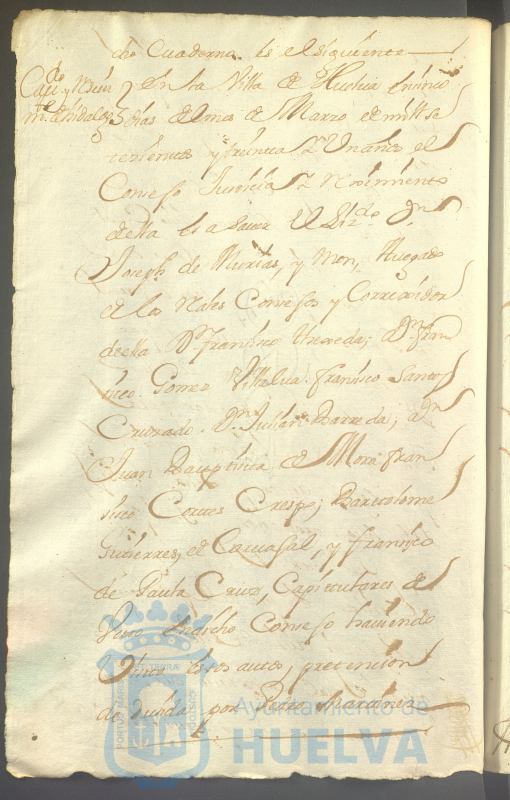 deo Cuaderna. es el siguiente
Cavdo y Nun
mto de hidalgo
En la Villa de Huelva en cinco
dias del mes de Marzo de mill se
tecientos y treinta y Un años el
Consejo Justicia y Reximiento
della es a saver el Lizdo Dn
Joseph de Murias, y Mon, Avogado
de los Rales Consejos y Correxidor
della Dn francisco Heredia; Dn fran
sisco Gomez Villalva. francisco Santos
Cruzado. Dn Julian Barreda; Dn
Juan Bauptista de Mora fran
sisco Cortes Crespo; Bartolome
Gutierres, de Carvajal, y francisco
de Paula Cruz, Capitulares de
dicho Consejo haviendo
Visto estos autos, pretencion
de por Pedro Martinez
Ayuntamiento de
HUELVA